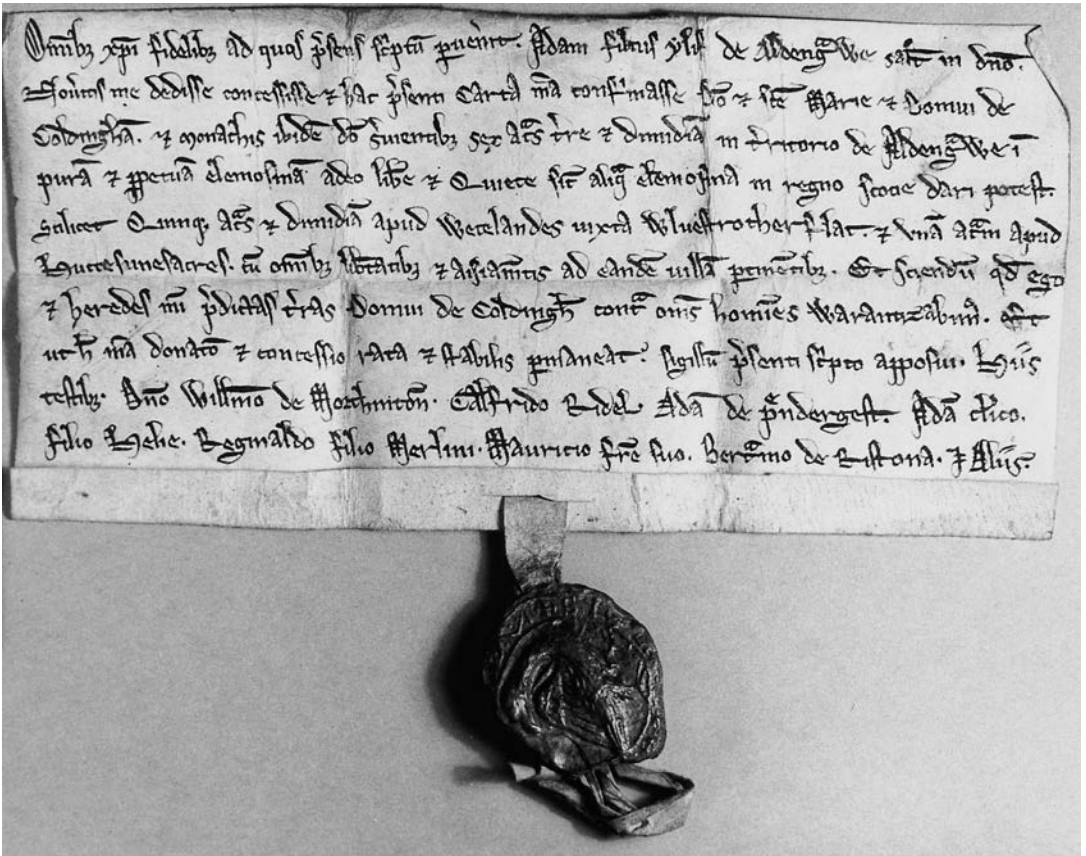 Om̄ibꝫ xp̄i fidelibꝫ ad quos p̄sens sc̓ptū puen̓int. Adam filius ylif de Aldengͣwe saƚt in dn̄o.
Nou̓itis me dedisse concessisse ⁊ hac p̄senti Carta mā conf̓masse do ⁊ sc̄e Marie ⁊ Domui de
Coldinghā. ⁊ monachis ibidē dō s̓uientibꝫ sex ac̓s t̓re ⁊ dimidiā in t̓ritorio de Aldengͣwe ī
purā ⁊ ꝑpetuā elemosinā adeo lib̓e ⁊ Quiete sic̄ aliqͣ elemosina in regno scocie dari potest.
Scilicet Quinqꝫ ac̓s ⁊ dimidiā apud Wetelandes iuxta Wluestrotherflat. ⁊ vnā ac̓m apud
Huttesunesacres. cū om̄ibꝫ lib̓tatibꝫ ⁊ aisiam̄tis ad eandē uillā ꝑtinētibꝫ. Et Sciendū qd̄ ego
⁊ heredes mi p̄dictas t̓ras Domui de Coldingh̄ contͣ om̄s homines Warantizabimꝰ. Et
ut h̄ mā donatō ⁊ concessio rata ⁊ stabilis ꝑmaneat. sigillū p̄senti sc̓pto apposui. Hiis
testibꝫ. Dn̄o Willmō de Mordintōn. Galfrido Ridel. Adā de p̄ndergest. Adā cl̓ico.
filio Helie. Reginaldo filio Merlini. Mauricio fr̄e suo. Bertͣmo de Ristona. ⁊ Aliis.